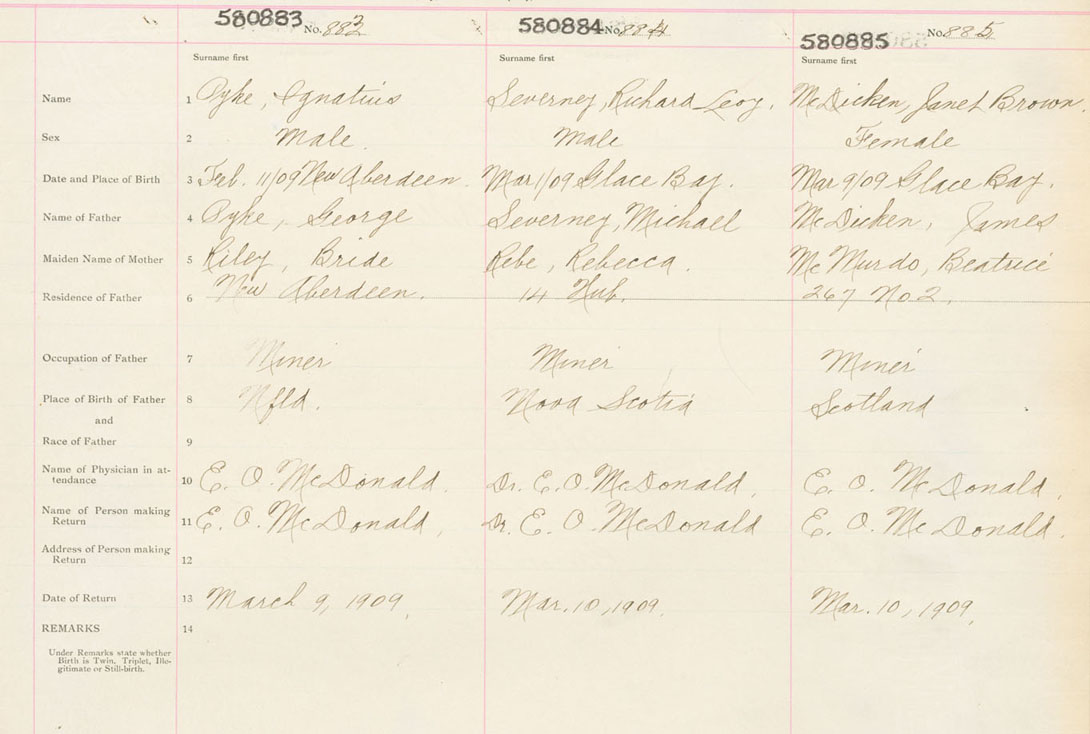 580883 No. 883 580884 No. 884 580885 No. 885
Surname first Surname first Surname first
Name 1 Pyke, Ignatius Severney, Richard Leoy. McDicken, Janet Brown.
Sex 2 Male. Male Female
Date and Place of Birth 3 Feb. 11/09 New Aberdeen. Mar 1/09 Glace Bay. Mar 9/09 Glace Bay.
Name of Father 4 Pyke, George Severney, Michael McDicken, James
Maiden Name of Mother 5 Riley, Bride Rebe, Rebecca. McMurdo, Beatrice
Residence of Father 6 New Aberdeen. 14 Hub. 267 No 2.
Occupation of Father 7 Miner Miner Miner
Place of Birth of Father 8 Nfld. Nova Scotia Scotland
and
Race of Father 9
Name of Physician in at-
tendance 10 E. O. McDonald. Dr. E. O. McDonald, E. O. McDonald,
Name of Person making
Return 11 E. O. McDonald, Dr. E. O. McDonald E. O. McDonald.
Address of Person making
Return 12
Date of Return 13 March 9, 1909, Mar. 10, 1909. Mar. 10, 1909,
REMARKS 14
Under Remarks state whether
Birth is Twin, Triplet, Ille-
gitimate or Still-birth.